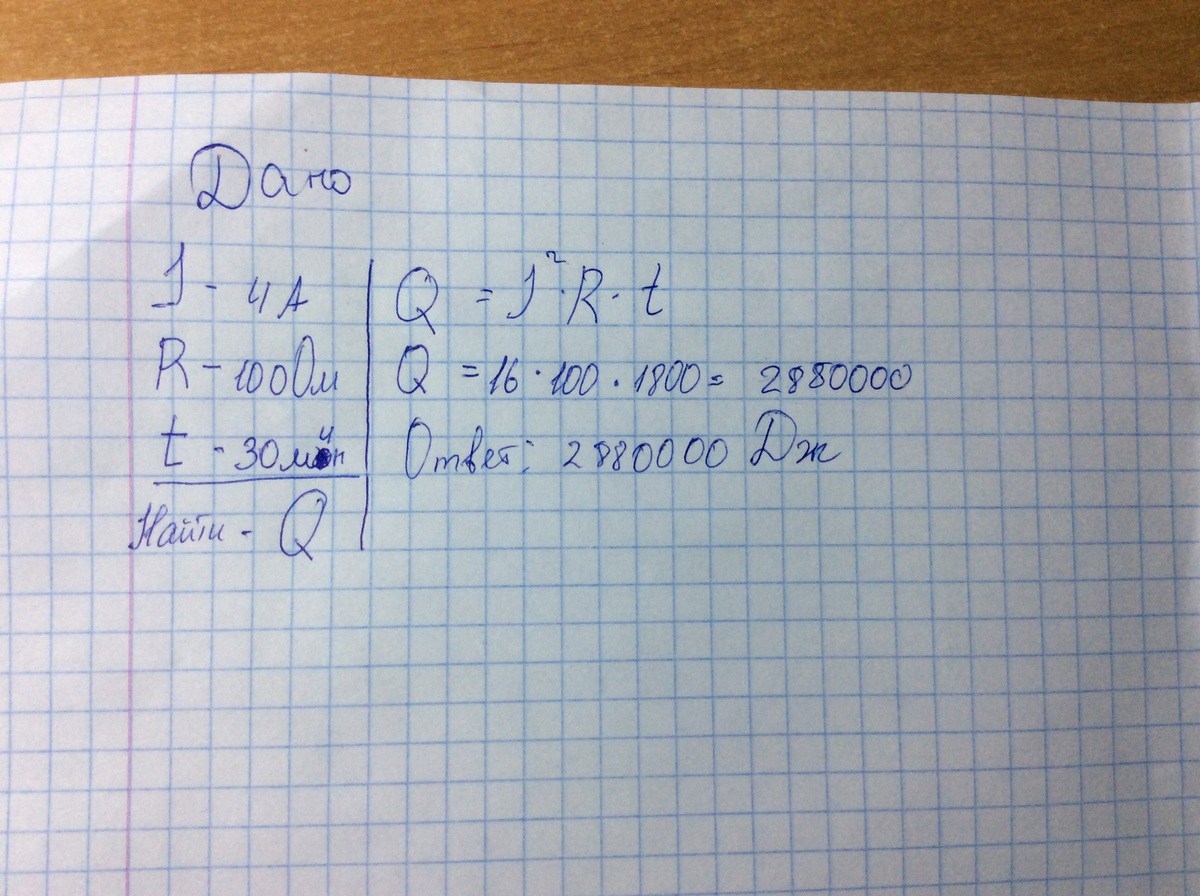 Дано
I - 4 А
R - 100 Ом
t - 30 мин
Найти - Q
Q = I² · R · t
Q = 16 · 100 · 1800 = 2880000
Ответ: 2880000 Дж